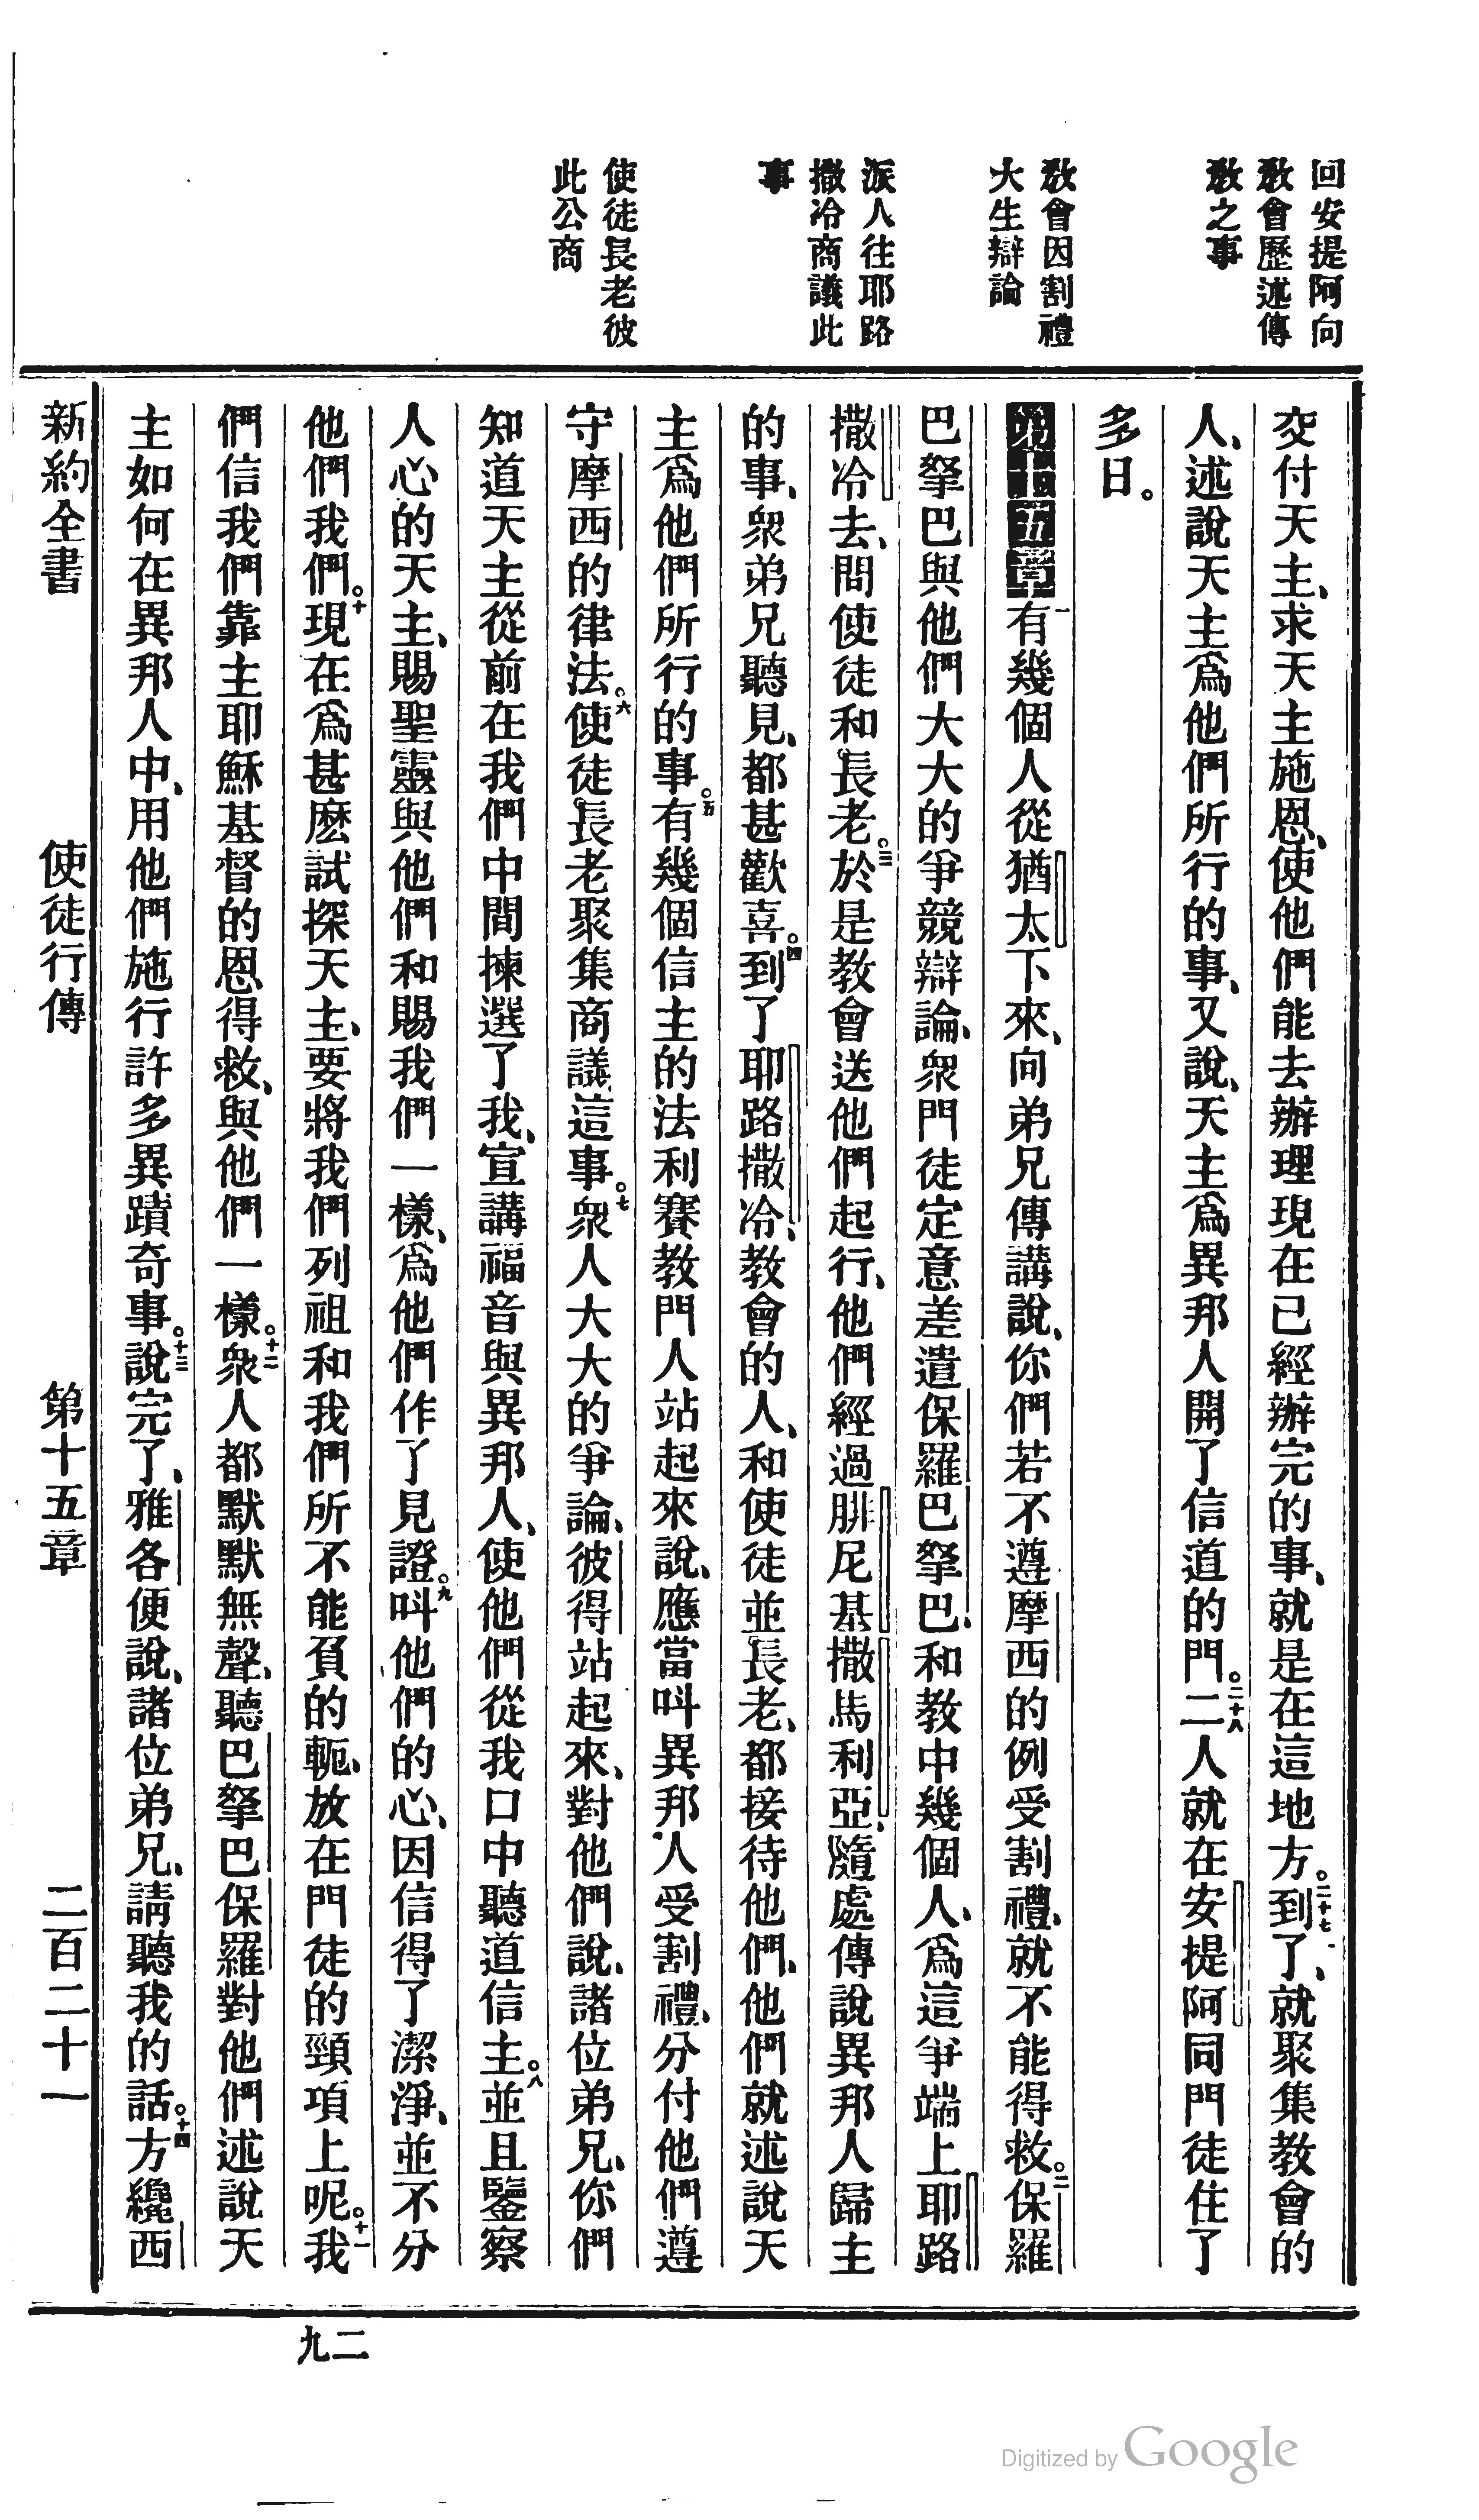 回安提阿向
教會歷述傳
教之事
教會因割禮
大生辯論
派人往耶路
撒冷商議此
事
使徒長老彼
此公商
交付天主、求天主施恩、使他們能去辦理現在已經辦完的事、就是在這地方。二十七到了、就聚集教會的
人、述說天主爲他們所行的事、又說、天主爲異邦人開了信道的門。二十八二人就在安提阿同門徒住了
多日。
第十五章一有幾個人從猶太下來、向弟兄傳講說、你們若不遵摩西的例受割禮、就不能得救。二保羅
巴拏巴與他們大大的爭競辯論、衆門徒定意差遣保羅巴拏巴、和教中幾個人、爲這爭端上耶路
撒冷去、問使徒和長老。三於是教會送他們起行、他們經過腓尼基撒馬利亞、隨處傳說異邦人歸主
的事、衆弟兄聽見、都甚歡喜。四到了耶路撒冷、教會的人、和使徒並長老、都接待他們、他們就述說天
主爲他們所行的事。五有幾個信主的法利賽教門人站起來說、應當呌異邦人受割禮、分付他們遵
守摩西的律法。六使徒長老聚集商議這事。七衆人大大的爭論、彼得站起來、對他們說、諸位弟兄、你們
知道天主從前在我們中間揀選了我、宣講福音與異邦人、使他們從我口中聽道信主。八並且鑒察
人心的天主、賜聖靈與他們和賜我們一樣、爲他們作了見證。九呌他們的心、因信得了潔淨、並不分
他們我們。十現在爲甚麽試探天主、要將我們列祖和我們所不能負的軛、放在門徒的頸項上呢。十一我
們信我們靠主耶穌基督的恩得救、與他們一樣。十二衆人都默默無聲、聽巴拏巴保羅對他們述說天
主如何在異邦人中、用他們施行許多異蹟奇事。十三說完了、雅各便說、諸位弟兄、請聽我的話。十四方纔西
新約全書 使徒行傳 第十五章 二百二十一
二九
Digitized by Google